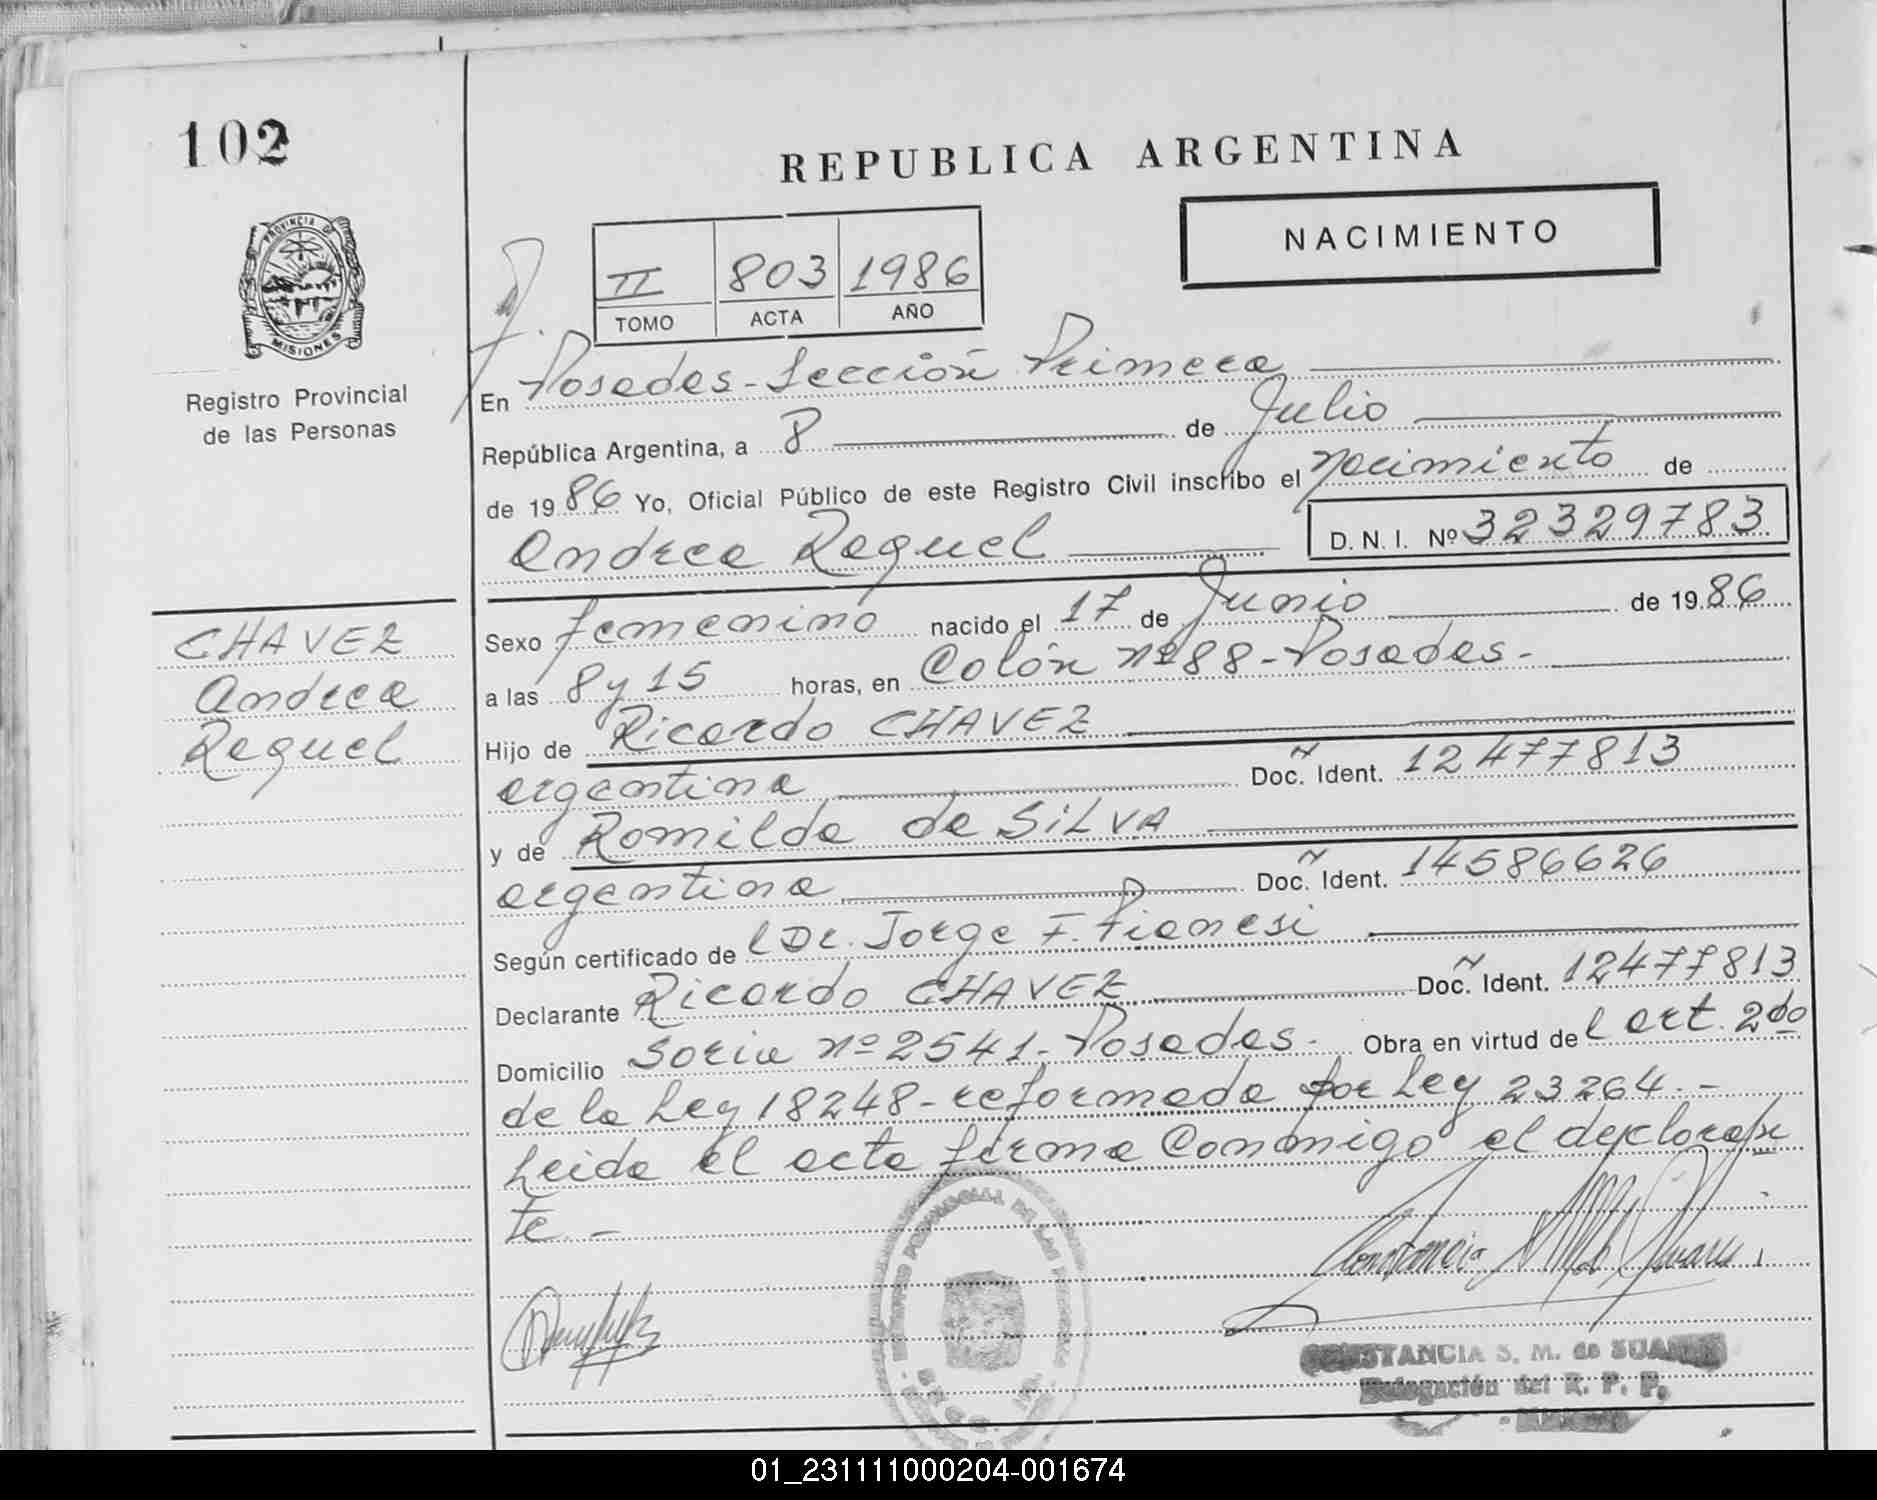 102
REPUBLICA ARGENTINA
PROVINCIA DE
MISIONES
Registro Provincial
de las Personas
II 803 1986
TOMO ACTA AÑO
NACIMIENTO
En Posadas - Sección Primera
República Argentina, a 8 de Julio
de 1986 Yo, Oficial Público de este Registro Civil inscribo el nacimiento de
Andrea Raquel D. N. I. Nº 32329783
CHAVEZ
Andrea
Raquel
Sexo femenino nacido el 17 de Junio de 1986
a las 8 y 15 horas, en Colón nº 88 - Posadas -
Hijo de Ricardo CHAVEZ
argentina Doc. Ident. 12477813
y de Romilda da SILVA
argentina Doc. Ident. 14586626
Según certificado de l Dr. Jorge F. Pianesi
Declarante Ricardo CHAVEZ Doc. Ident. 12477813
Domicilio Soria nº 2541 - Posadas - Obra en virtud de l art. 2do
de la Ley 18248 - reformada por Ley 23264. -
Leida el acta firma conmigo el declaran
te. -
CONSTANCIA S. M. de SUAREZ
Delegación del R. P. P.
01_231111000204-001674